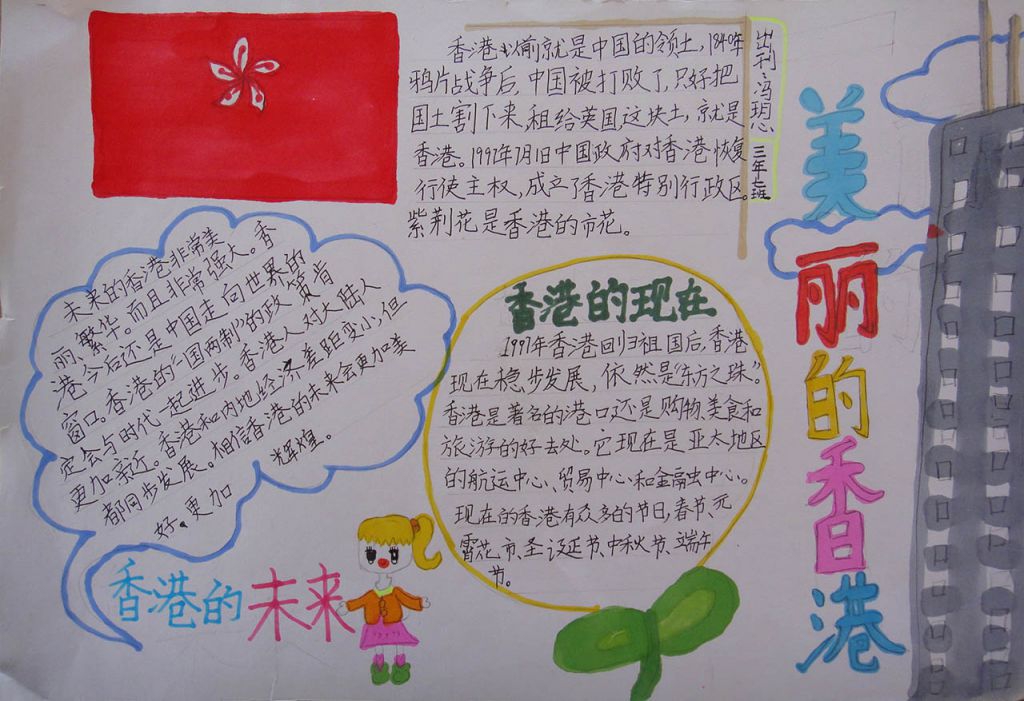 美丽的香港
出刊:冯玥心
三年七班
香港以前就是中国的领土,1840年
鸦片战争后,中国被打败了,只好把
国土割下来,租给英国,这块土,就是
香港。1997年7月1日中国政府对香港恢复
行使主权,成立了香港特别行政区。
紫荆花是香港的市花。
香港的现在
1997年香港回归祖国后,香港
现在稳步发展,依然是“东方之珠”。
香港是著名的港口,还是购物、美食和
旅游的好去处。它现在是亚太地区
的航运中心、贸易中心和金融中心。
现在的香港有众多的节日,春节、元
霄花市、圣诞节、中秋节、端午
节。
未来的香港非常美
丽、繁华。而且非常强大。香
港今后还是中国走向世界的
窗口。香港的“一国两制”的政策肯
定会与时代一起进步。香港人对大陆人
更加亲近。香港和内地经济差距变小,但
都同步发展。相信香港的未来会更加美
好、更加
辉煌。
香港的未来